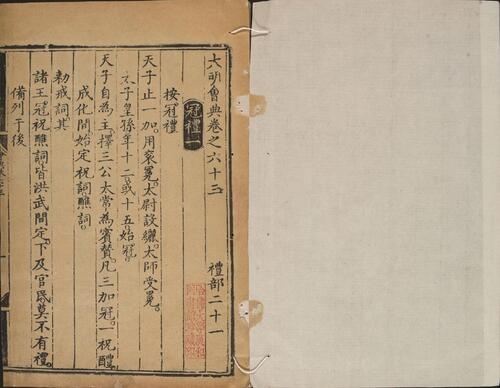 大明會典卷之六十三 禮部二十一
冠禮一
按冠禮
天子止一加。用袞冕。太尉設纚。太師受冕。
太子皇孫年十二或十五。始冠。
天子自為主擇三公太常為賓贊。凡三加冠。一祝醴。
成化間始定祝詞醮詞。
勑戒詞其
諸王冠祝醮詞皆洪武間定。下及官民莫不有禮。
備列于後